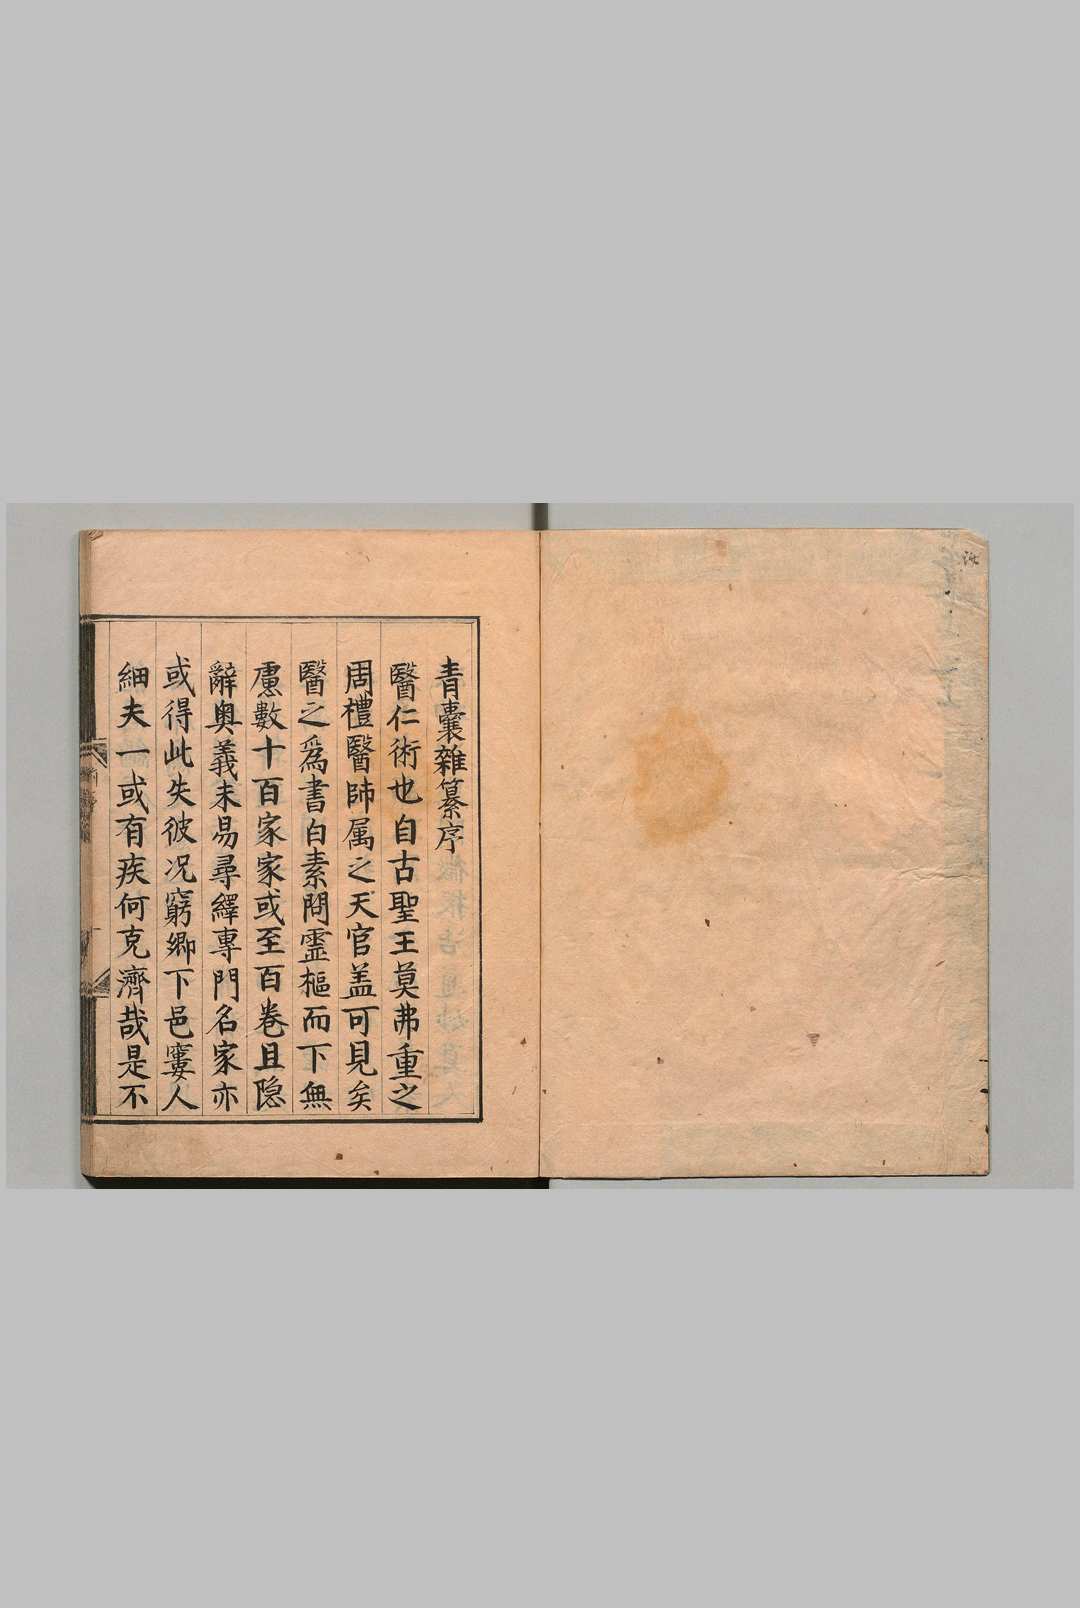 青囊雜纂序
醫仁術也自古聖王莫弗重之
周禮醫師属之天官盖可見矣
醫之爲書自素問霊樞而下無
慮數十百家家或至百卷且隐
辭奥義未易尋繹專門名家亦
或得此失彼况窮鄉下邑窶人
細夫一或有疾何克濟哉是不